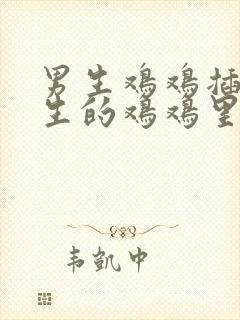 男生鸡鸡插
生的鸡鸡里
韦凯中